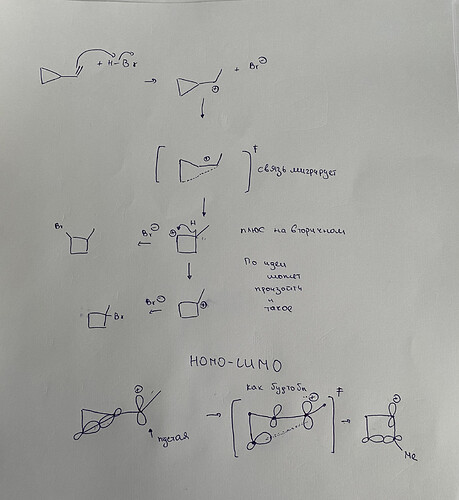 + H-Br
+ Br⊖
⊕
⊕
≠
связь мигрирует
Br
Br⊖
⊕
H
плюс на вторичном
По идеи
может
произойти
и
такое
Br
Br⊖
⊕
HOMO-LUMO
⊕
как будтобы
⊕
≠
⊕
пустая
Me